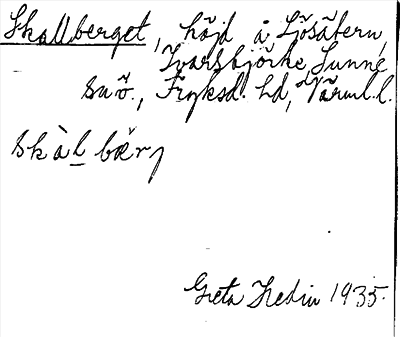 Skallberget, höjd å Ljösätern,
Ivarsbjörke, Sunne
sn ö., Fryksd. hd, Värml. l.
skàl bærj
Greta Hedin 1935.